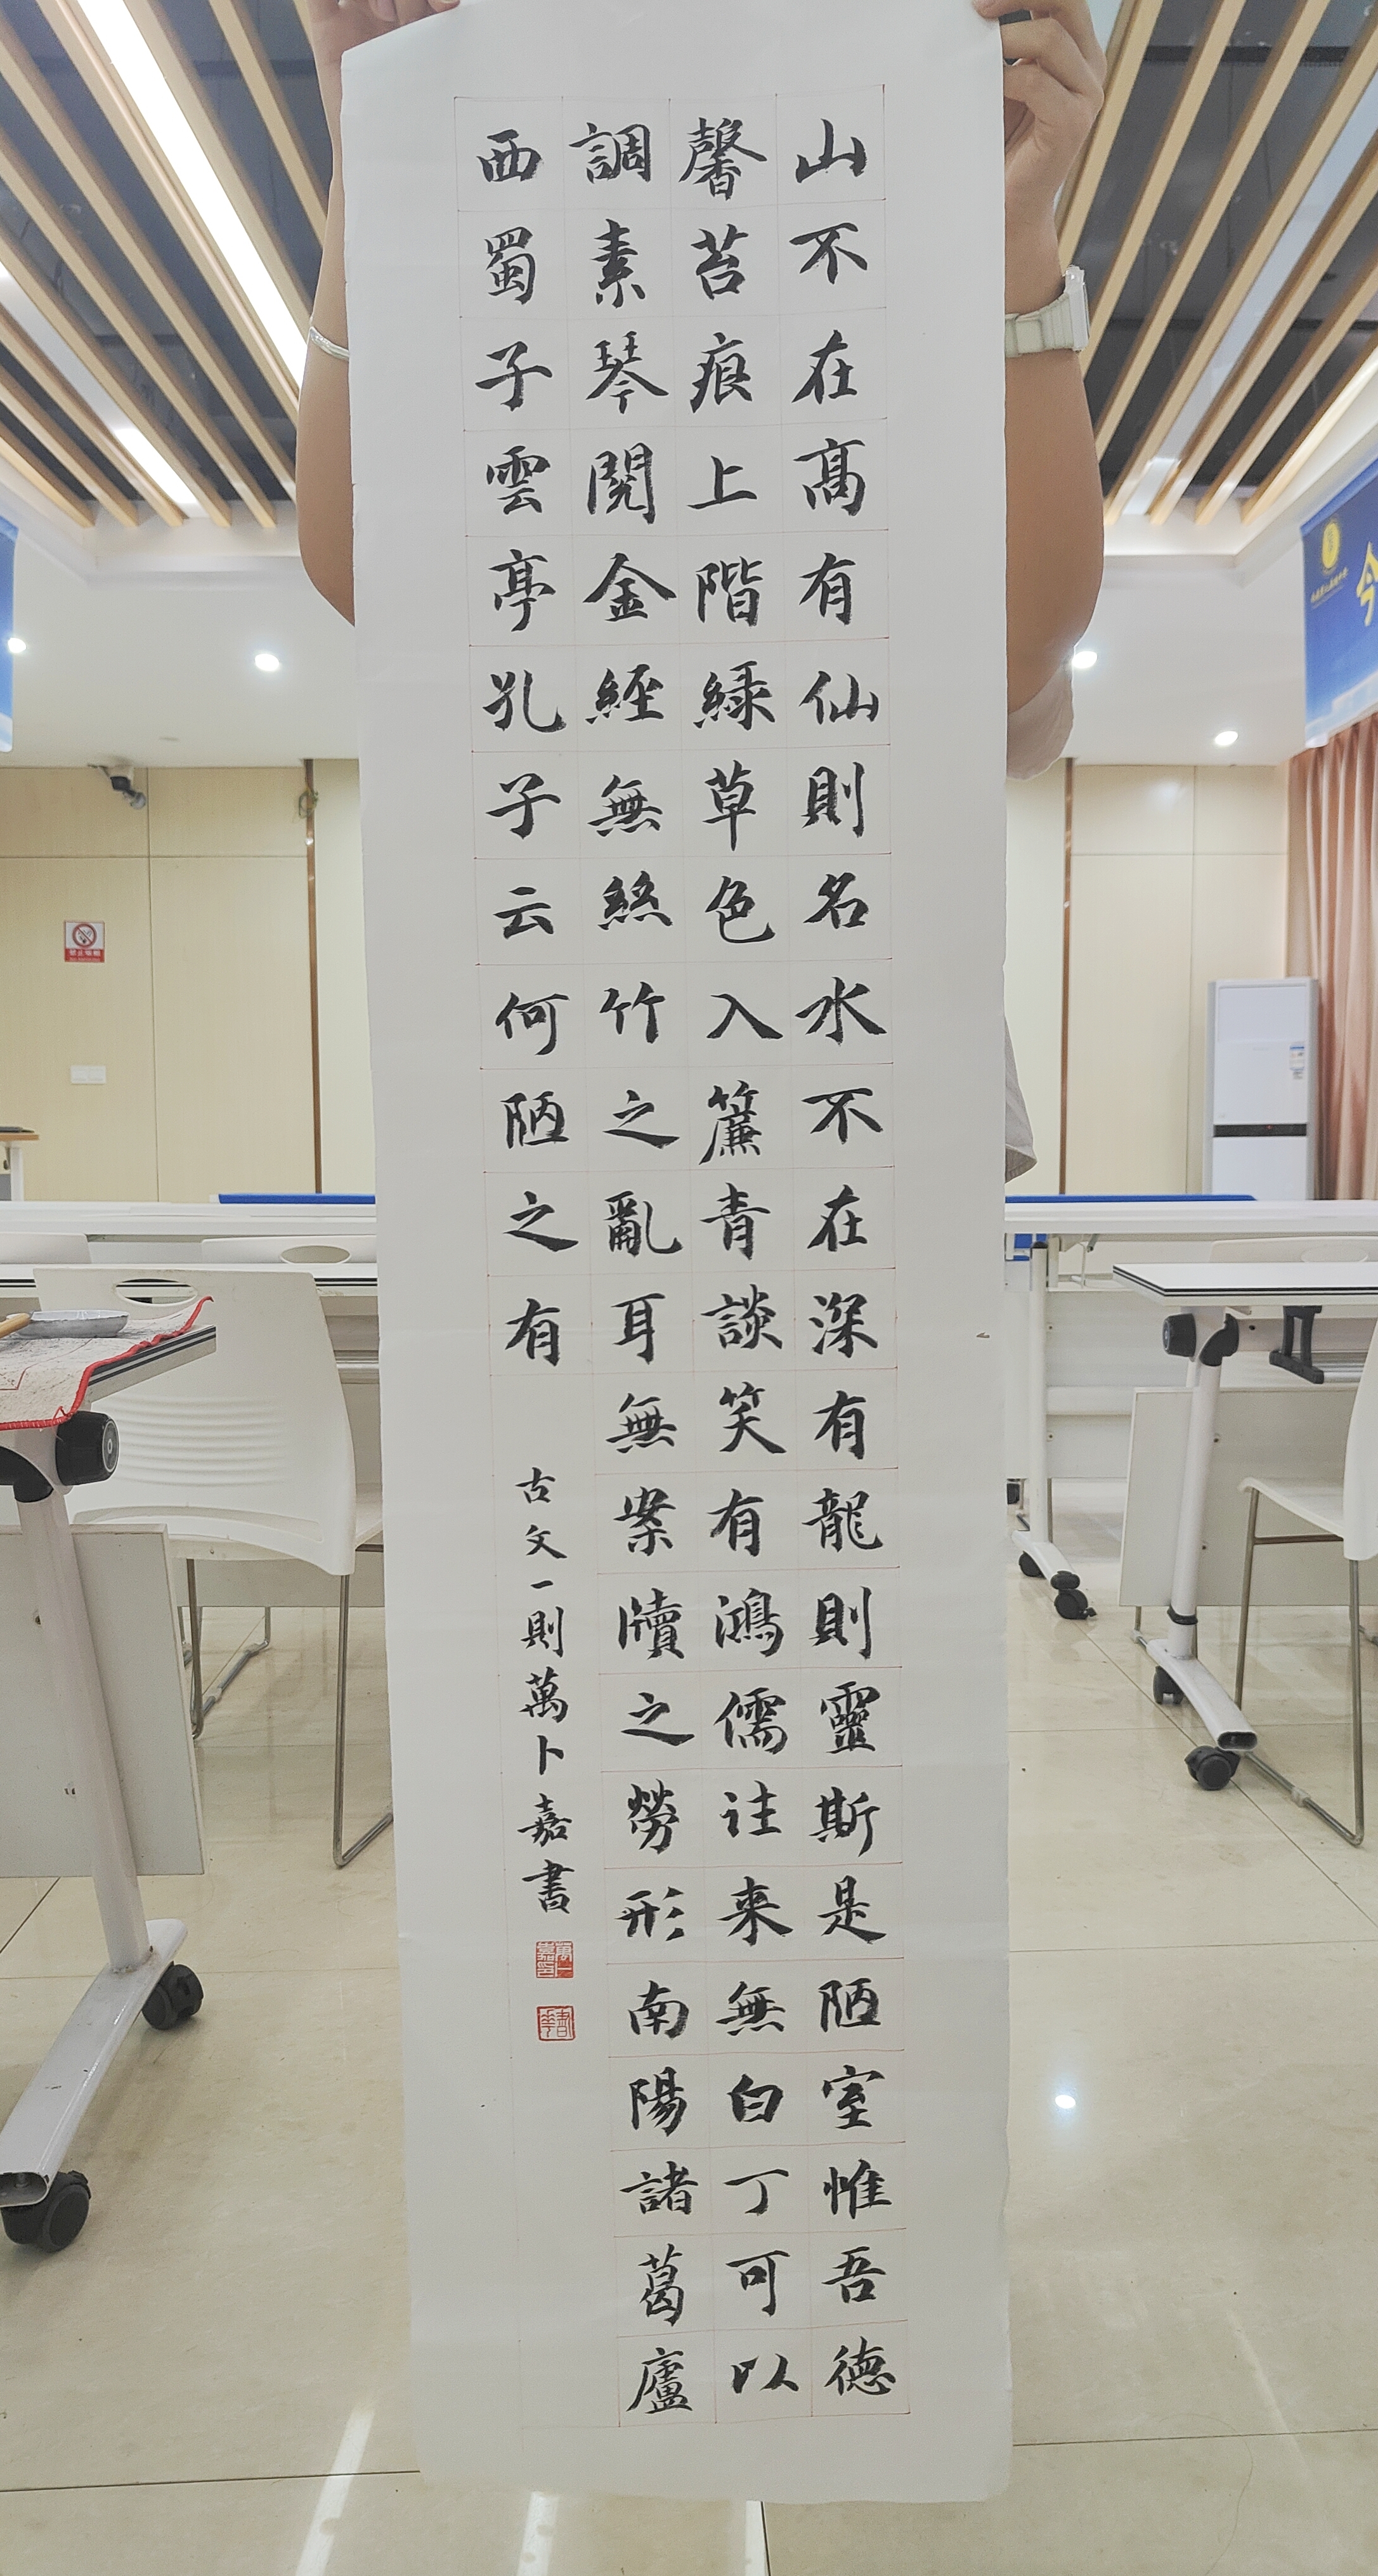 山不在髙有仙則名水不在深有龍則靈斯是陋室惟吾德
馨苔痕上階緑草色入簾青談笑有鴻儒往来無白丁可以
調素琴閱金經無絲竹之亂耳無案牘之勞形南陽諸葛廬
西蜀子雲亭孔子云何陋之有
古文一則萬卜嘉書
今